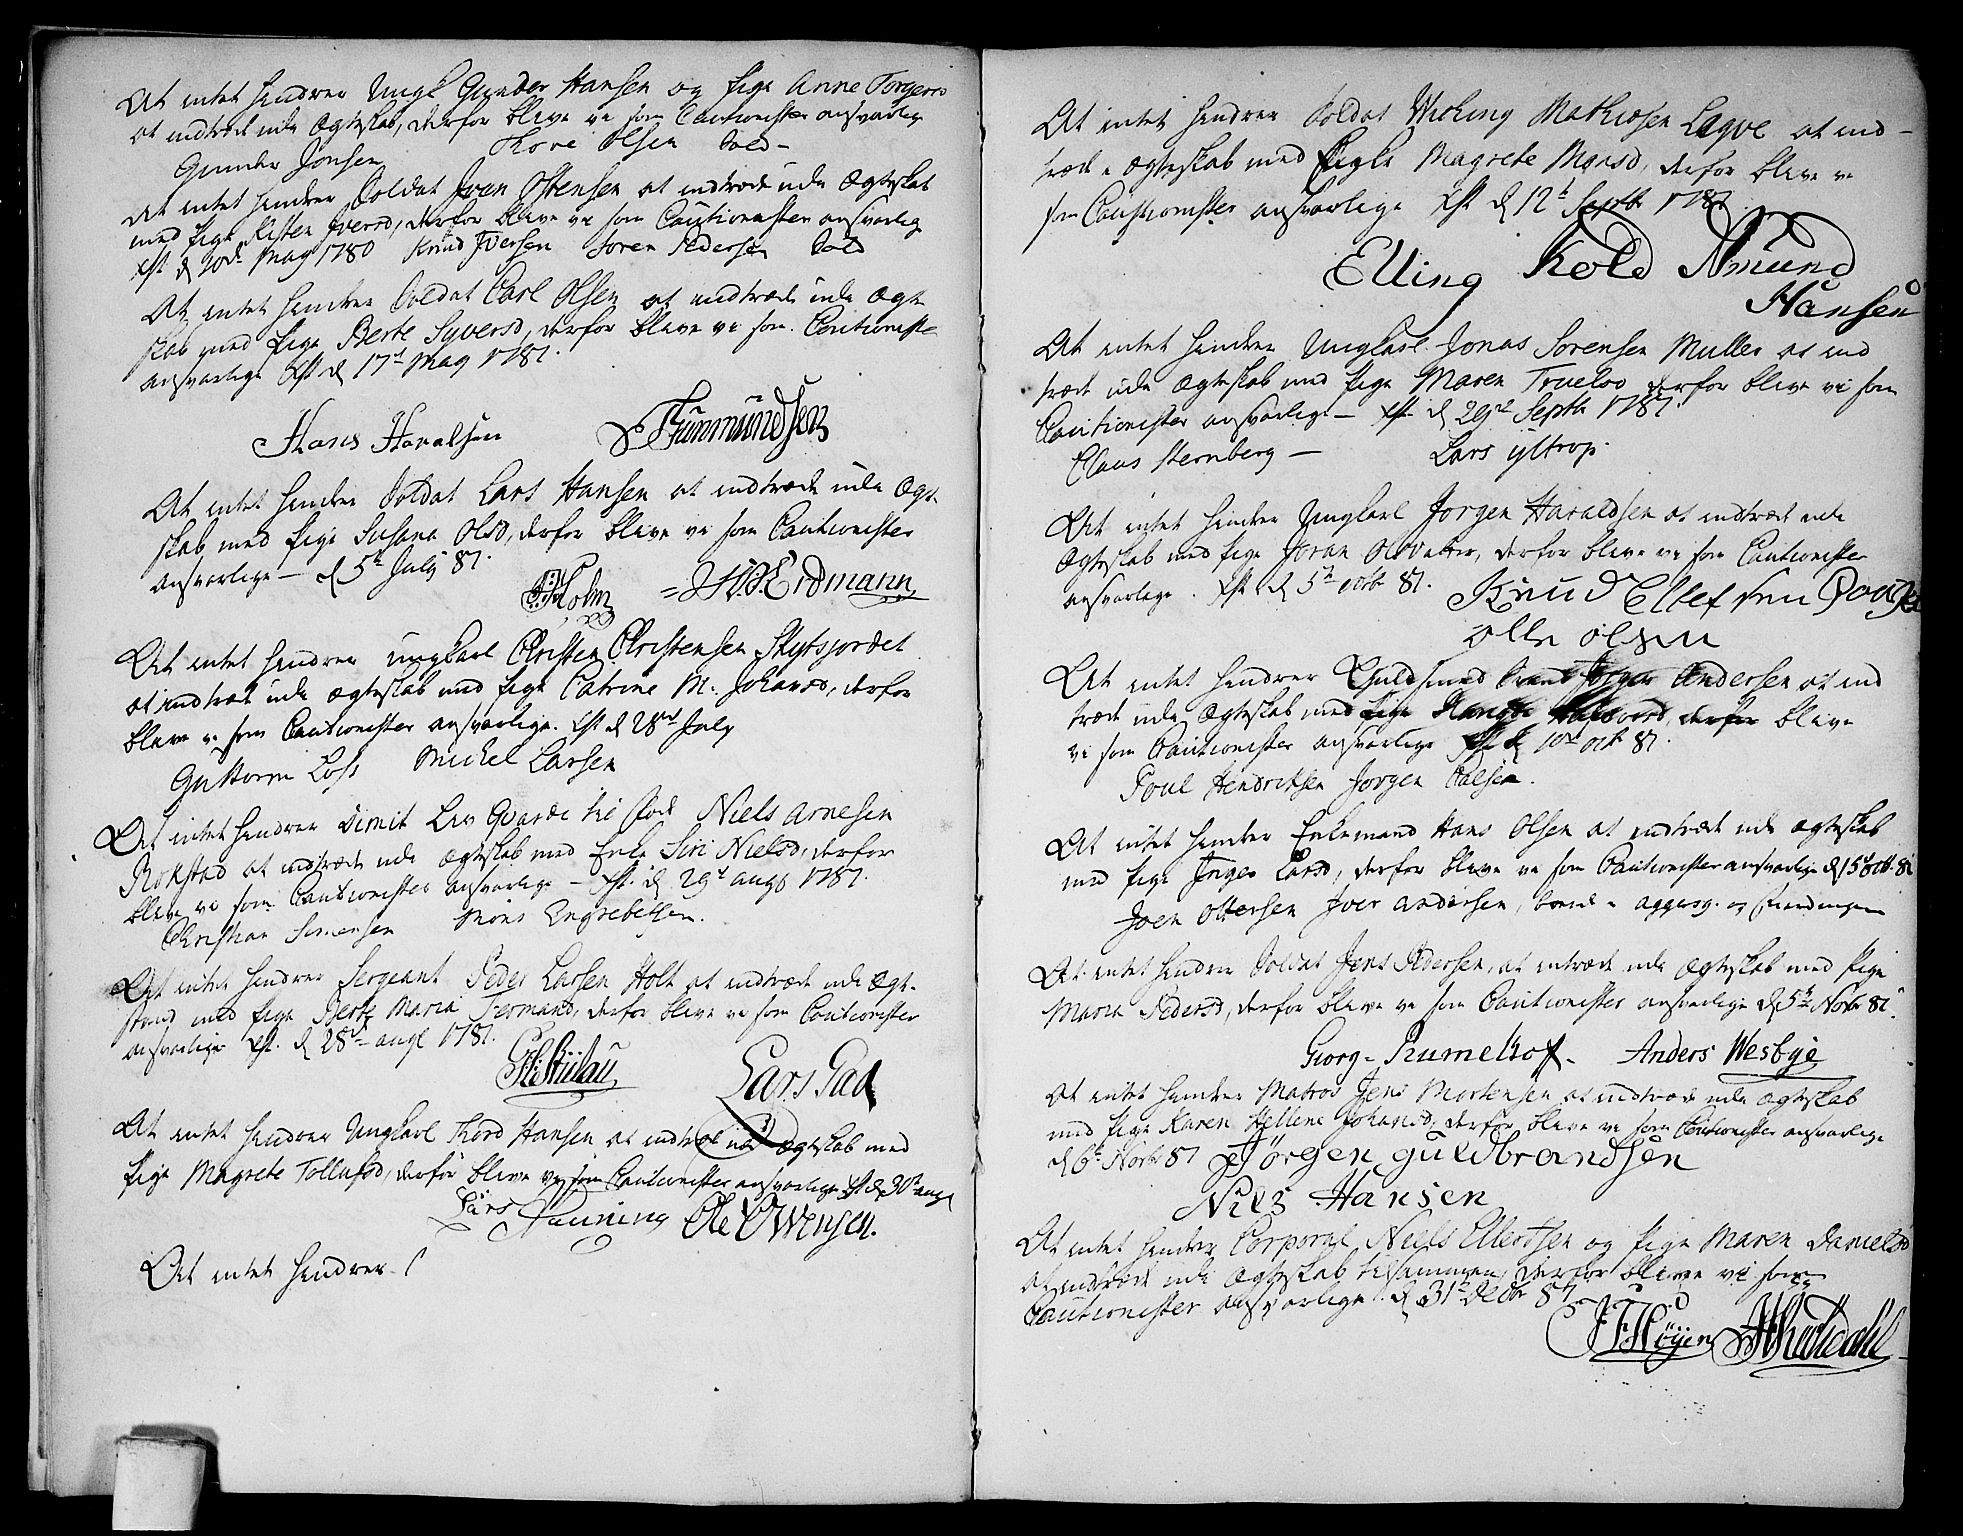 At intet hindrer Ungk Gunder Hansen og Pige Anne Torgersd
at indtræde udi Ægteskab, derfor blive vi som Cautionister ansvarlige
Gunder Jonsen Thore Olsen Sold
At intet hindrer Soldat Iver Ostensen at indtræde udi Ægteskab
med Pige Kisten Iversd, derfor blive vi som Cautionister ansvarlig
Xst d 20de May 1780 Knud Iversen Soren Pedersen Sold
At intet hindrer Soldat Carl Olsen at indtræde udi Ægte
skab med Pige Berte Syversd, derfor blive vi som Cautioniste
ansvarlige Xst d 17de May 1781.
Hans Haralsen Gunmundsen
At intet hindrer Soldat Lars Hansen at indtræde udi Ægte
skab med Pige Susana Olsd, derfor blive vi som Cautionister
ansvarlige – d 5te July 81.
Holm Erdmann
At intet hindrer ungkarl Christen Christensen Skytsjordet
at indtræde udi Ægteskab med Pige Catrine M. Johansd, derfor
blive vi som Cautionister ansvarlige. Xst d 28de July
Guttorm Loss Michel Larsen
At intet hindrer Dimit Liv Guarde til fods Niels Arnesen
Rokstad at indtræde udi Ægteskab med Enke Siri Nielsd, derfor
blive vi som Cautionister ansvarlige – Xst. d 29de augs 1781.
Christian Simensen Mons Engrebetsen.
At intet hindrer Sergeant Peder Larsen Holt at indtræde udi Ægte-
stand med Pige Berte Maria Fermand, derfor blive vi som Cautionister
ansvarlige Xst. d 28de augs 1781.
Lars Gad
At intet hindrer Ungkarl Thord Hansen at indtræde udi Ægteskab med
Pige Magrete Tollefsd, derfor blive vi som Cautionister ansvarlige Xst d 30te aug
Lars Ole Owensen.
At intet hindrer
At intet hindrer Soldat Wiching Mathiesen Leqve at ind-
træde i Ægteskab med Pige Magrete Monsd, derfor blive vi
som Cautionister ansvarlige Xst d 12te Septb 1781
Elling Kold Amund
Hansen
At intet hindrer Ungkarl Jonas Sorensen Muller at ind
træde udi Ægteskab med Pige Maren Truelsd derfor blive vi som
Cautionister ansvarlige – Xst d 29de Septb 1781.
Claus Sternberg – Lars yltrop.
At intet hindrer Ungkarl Jorgen Haraldsen at indtræde udi
Ægteskab med Pige Joran, derfor blive vi som Cautionister
ansvarlige. Xst d 5te octb 81. Knud Ellefsen
olle olsen
At intet hindrer Guldsmed Andersen at ind
træde udi Ægteskab med Pige, derfor blive
vi som Cautionister ansvarlige Xst d 10de octb 81.
Poul Hendrichsen Jorgen Palsen.
At intet hindrer Enkemand Hans Olsen at indtræde udi Ægteskab
med Pige Inger Larsd, derfor blive vi som Cautionister ansvarlige d 15de octb. 81
Joen Ottersen Iver Andersen,
At intet hindrer Soldat Jens Pedersen, at entræde udi Ægteskab med Pige
Maria Pedersd, derfor blive vi som Cautionister ansvarlige d 5te Novbr 81.
Georg Rumelhof. Anders Wesbye
At intet hindrer Matros Jens Mortensen at indtræde udi Ægteskab
med Pige Karen Hellene Johansd, derfor blive vi som Cautionister ansvarlige
d 6te Novbr 81 Jörgen Guldbrandsen
Nils Hansen
At intet hindrer Corporal Niels Ellertsen og Pige Maren Danielsd
at indtræde udi Ægteskab tilsammen, derfor blive vi som
Cautionister ansvarlige. d 31te Decbr 81.
J F Höyer